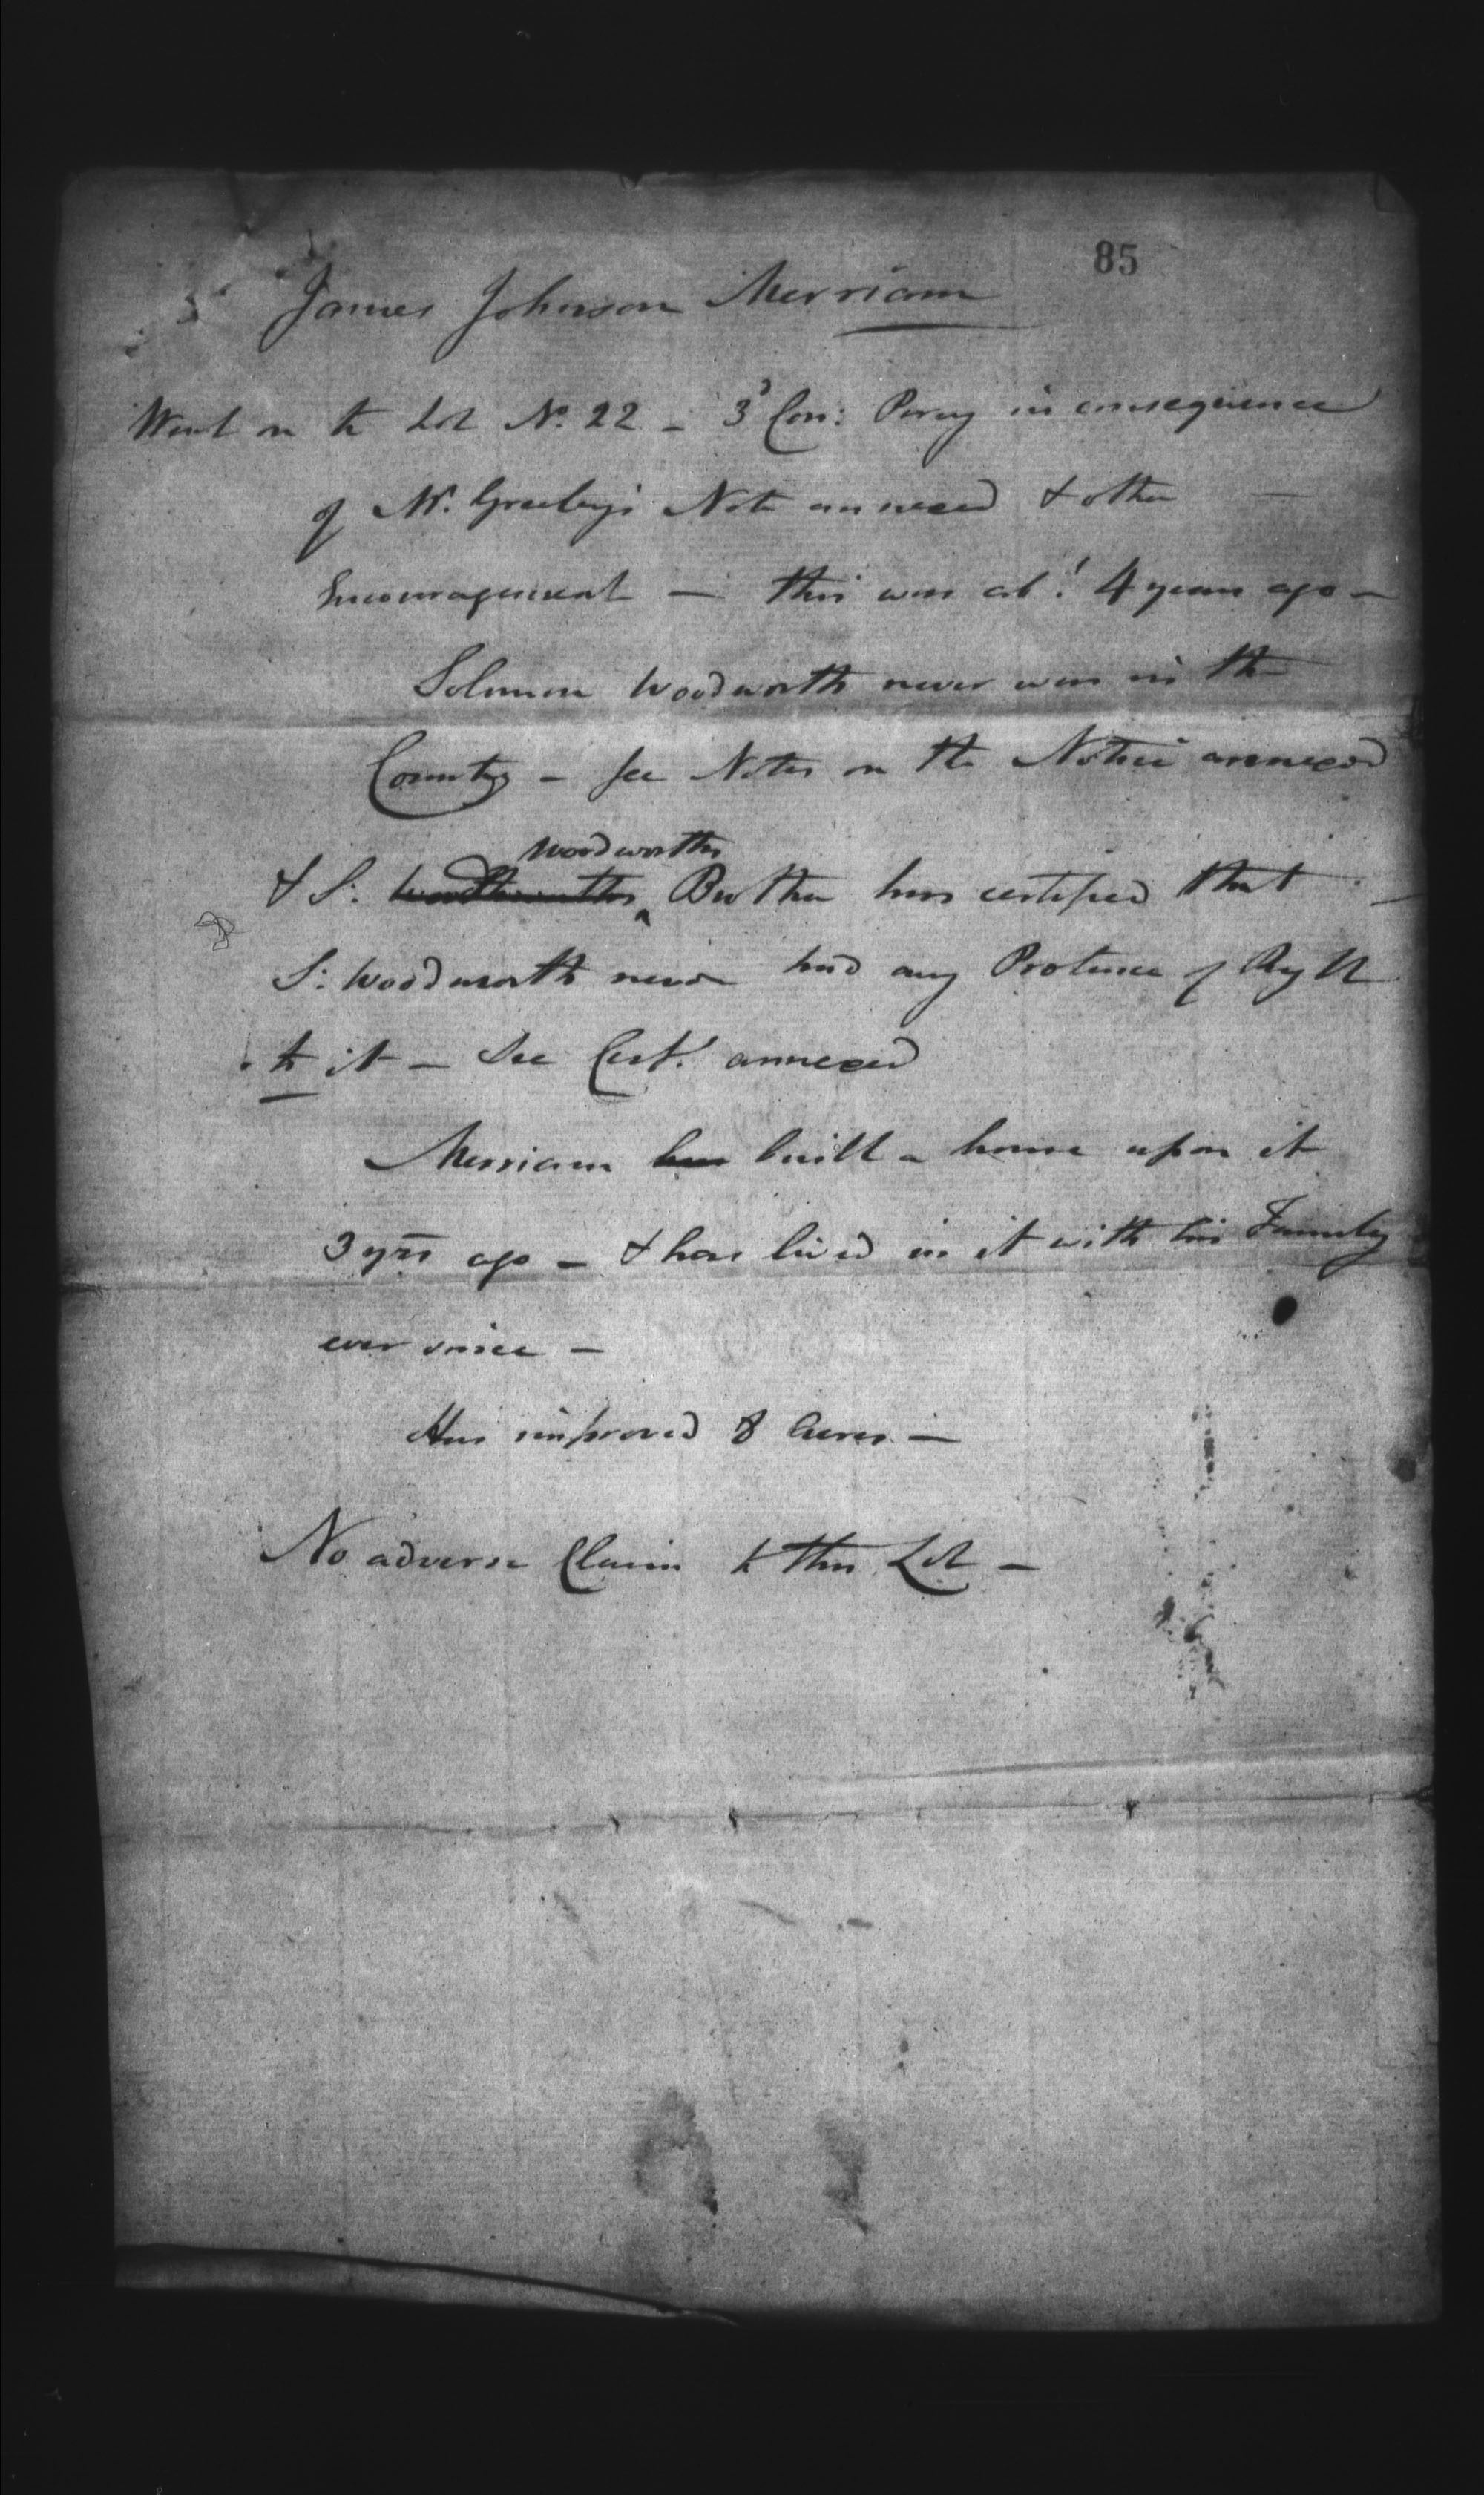 85
James Johnson Merriam
Went on the Lot No. 22 - 3d Con: Percy in consequence
of Mr. Greeley's Note annexed & other —
Encouragement — this was abt. 4 years ago —
Solomon Woodworth never was in the
Country - see Notes on the Notice annexed
Woodworths
& S: Brother has certified that —
S: Woodworth never had any Pretence of Right
to it — See Cert. annexed
Merriam has built a house upon it
3 yrs ago - & has lived in it with his Family
ever since —
Has improved 8 Acres —
No adverse Claim to this Lot —